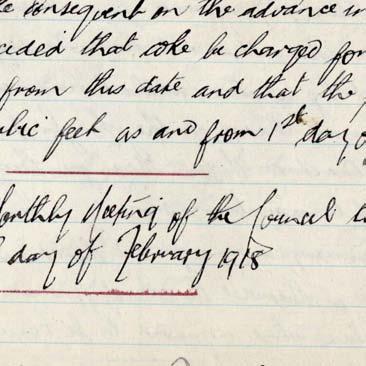 consequent on the advance in
cided that coke be charged for
from this date and that the
ubic feet as and from 1st day o
onthly Meeting of the Council
day of February 1918